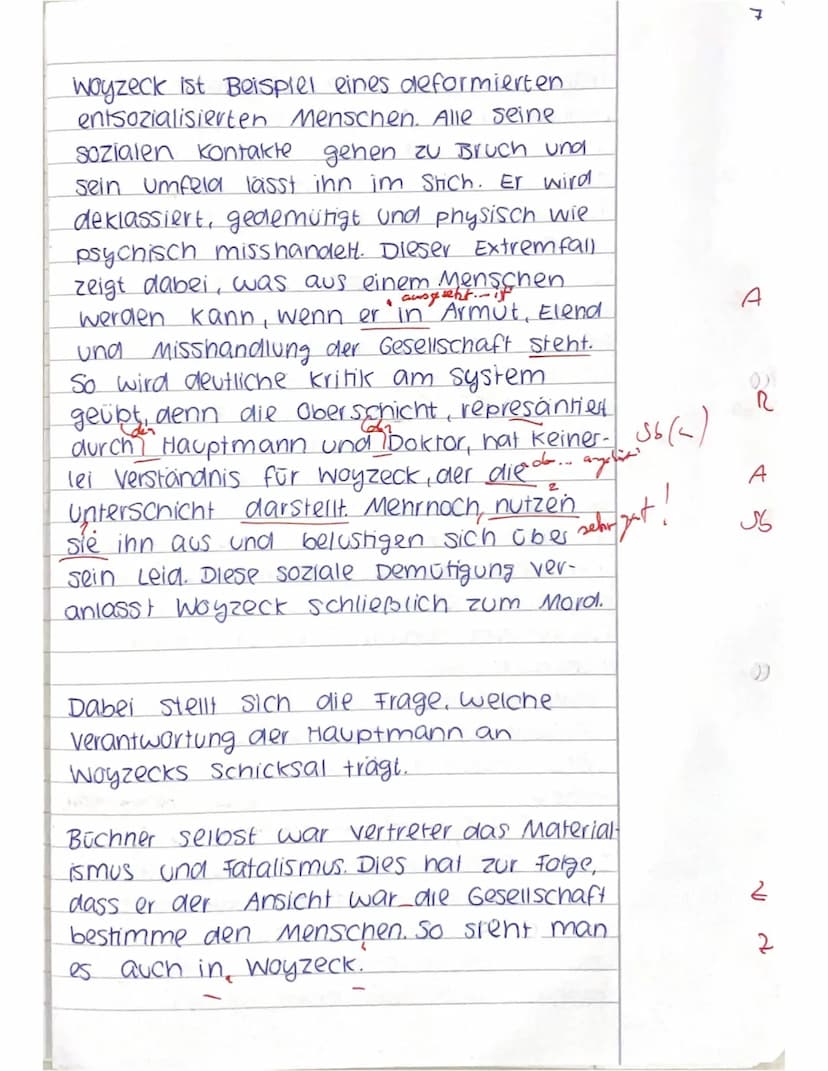 7
Woyzeck ist Beispiel eines deformierten
entsozialisierten Menschen. Alle seine
sozialen Kontakte gehen zu Bruch und
sein Umfeld lässt ihn im Stich. Er wird
deklassiert, gedemütigt und physisch wie
psychisch misshandelt. Dieser Extremfall
zeigt dabei, was aus einem Menschen
ausgesetzt ... ist
werden kann, wenn er in Armut, Elend A
und Misshandlung der Gesellschaft steht.
So wird deutliche Kritik am System
geübt, denn die Oberschicht, represäntiert R
(den (den
durch Hauptmann und Doktor, hat keiner- Sb(-)
lei Verständnis für Woyzeck, der die A
Unterschicht darstellt. Mehrnoch, nutzen
sie ihn aus und belustigen sich über sehr gut! Sb
sein Leid. Diese soziale Demütigung ver-
anlasst Woyzeck schließlich zum Mord.
Dabei stellt sich die Frage, welche
Verantwortung der Hauptmann an
Woyzecks Schicksal trägt.
Büchner selbst war Vertreter das Material-
ismus und Fatalismus. Dies hat zur Folge,
dass er der Ansicht war die Gesellschaft Z
bestimme den Menschen. So sieht man Z
es auch in Woyzeck.